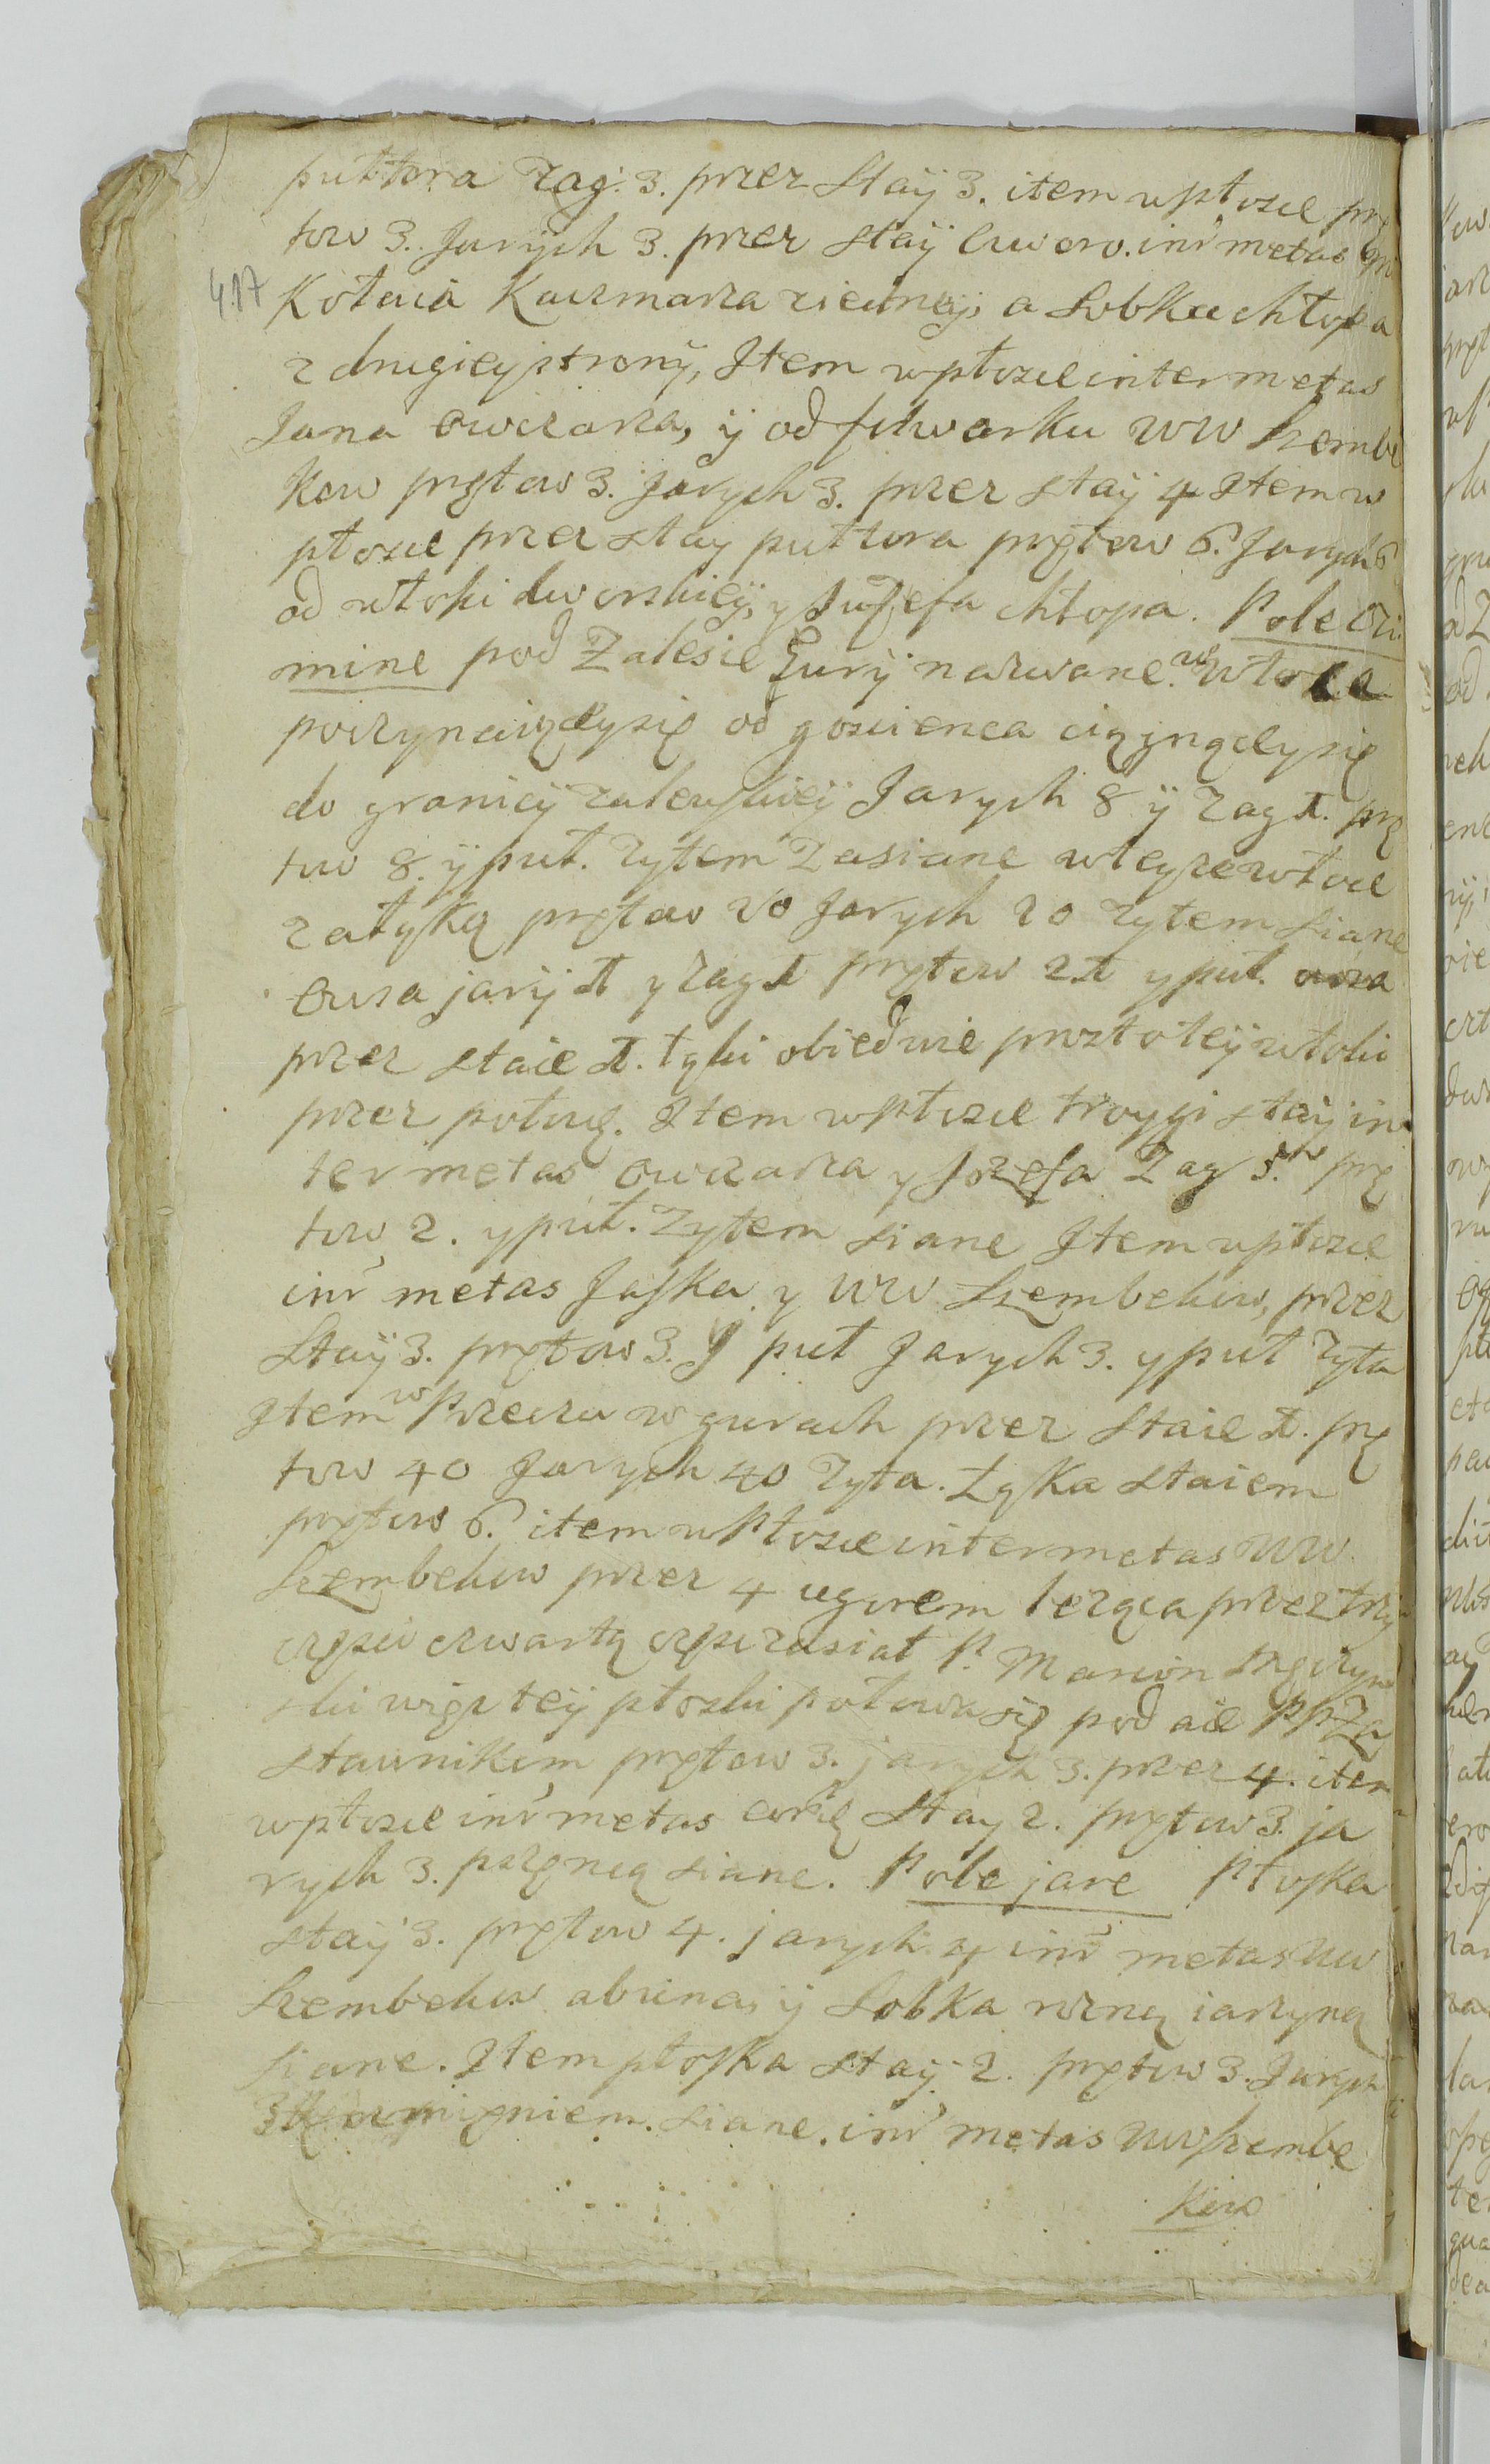 puttora zag: 3. przez staÿ 3. item w płosce prę
tow 3. Jarÿch 3. przez staÿ inr metas
417
Kołacia Kaczmarza ziedney, a Sobka chłopa
z drugieystronÿ, Item w płosce inter metas
Jana owczarza, ÿ od folwarku WW Szembe
kow prętow 3. Jarych 3. przez staÿ 4 Item w
płosce przez stay puttora prętow 6. Jarych 6
od włoki dworskieÿ, y Juzefa chłopa. Pole Ozi
mine pod Zalesie Gurÿ nazwane. w włoce
poczynaiącysię od goscienca ciągnącysię
do granicÿ zaleskieÿ Jarych 8 ÿ zag 1. prę
tow 8. ÿ puł. zytem zasiane wteyze włoce
z atyką prętow 20 Jarych 20 zytem siane
owsa jarÿ 1 y zag 1 prętow 21 y puł. owsa
przez staie 1. łąki obiedwie prosto teÿ włoki
przez połowę. Item w płosce troygi staÿ in
ter metas owczarza y Jozefa zag 5. prę
tow 2. y puł. zytem siane Item w płosce
inr metas Jaska y WW Szembekow, przez
staÿ 3. prętow 3. J puł Jarych 3. y puł zyta
Item w Przecza w gurach przez staie 1. prę
tow 40 Jarych 40 zyta. Łąka staiem
prętow 6. item w Płosce inter metas WW
Szembekow przez 4 ugorem leząca przez trzÿ
częsci czwartą częsc zasiał P. Marcin
ski więc teÿ płoski połowa się pod aie PP Za
stawnikem prętow 3. jarych 3. przez 4. item
w płosce inr metas stay 2. prętow 3. ja
rych 3. pszęnicą siane. Pole jare Płoska
staÿ 3. prętow 4. jarych 4 inr metas WW
Szembekow abiina, ÿ Sobka rzną iarzyną
siane. Item płoska staÿ 2. prętow 3. Jarych
3 ięmigniem. siane. inr metas WW Szembe
kow